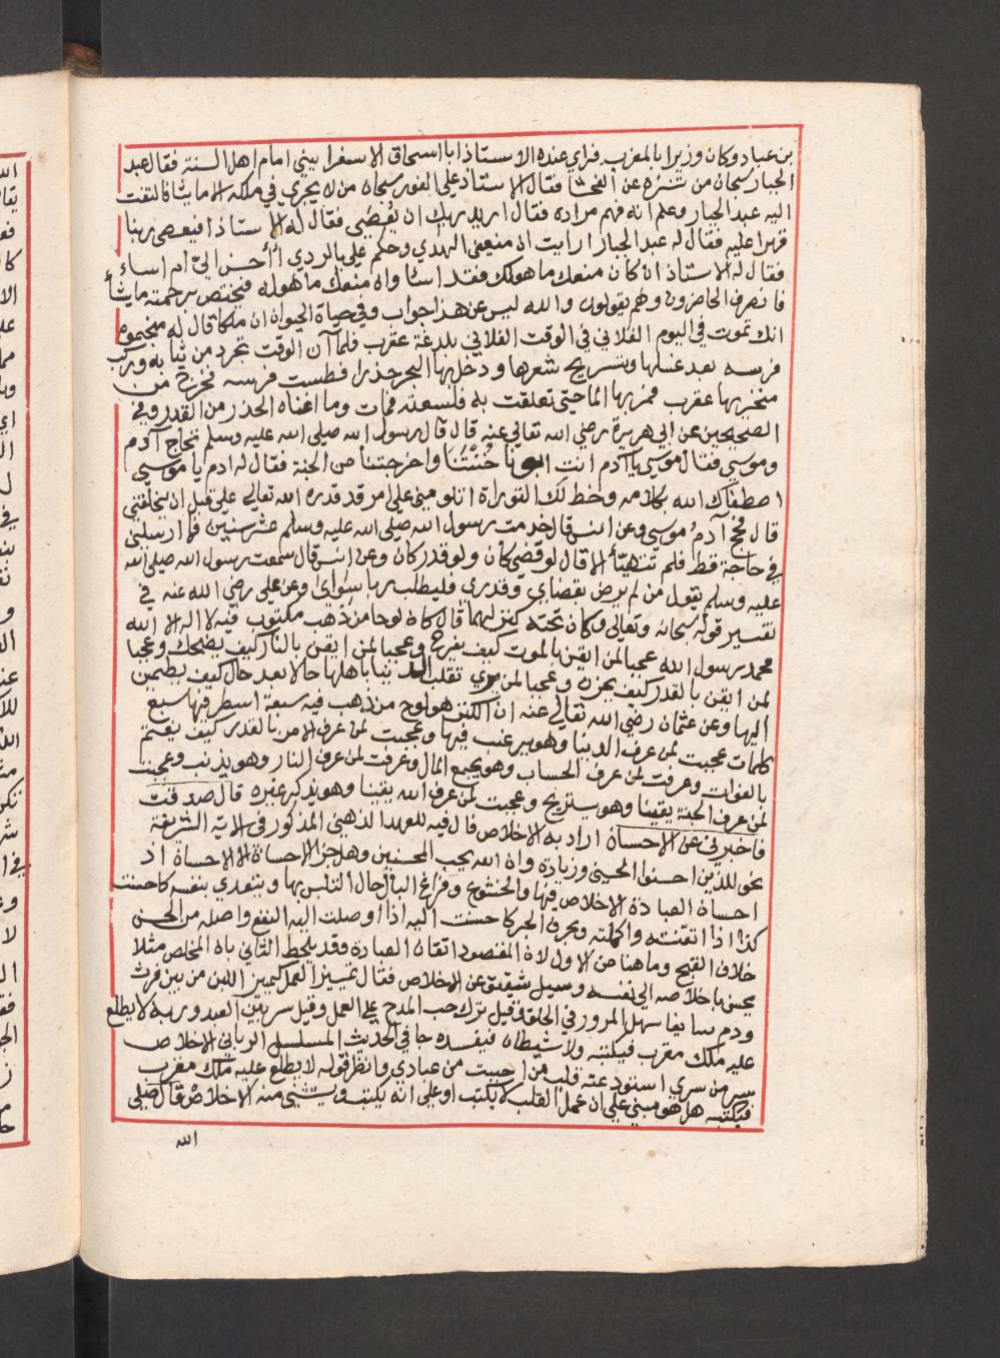 بن عباد وكان وزيرا بالمغرب فراي عنده الاستاذ ابا اسحاق الاسفراييني امام اهل السنة فقال عبد
الجبار سبحان من تنزه عن الفحشا فقال الاستاذ علي الفور سبحان من لا يجري في ملكه الا ما يشا فالتفت
اليه عبد الجبار وعلم انه فهم مراده فقال ايريد ربك ان يُعْصَي فقال له الاستاذ افيعصي ربنا
قهرا عليه فقال له عبد الجبار ارايت ان منعني الهدي وحكم علي بالردي أأحسن اليّ ام اساء
فقال له الاستاذ ان كان منعك ما هو لك فقد اسا وان منعك ما هو له فيختص برحمته ما يشأ
فانصرف الحاضرون وهم يقولون والله ليس عن هذا جواب وفي حياة الحيوان ان ملكا قال له منجموه
انك تموت في اليوم الفلاني في الوقت الفلاني بلدغة عقرب فلما آن الوقت تجرد من ثيابه وركب
فرسه بعد غسلها وتسريح شعرها ودخل بها البحر حذرا فعطست فرسه فخرج من
منخريها عقرب فمر بها الما حتي تعلقت به فلسعته فمات وما اغناه الحذر من القدر وفي
الصحيحين عن ابي هريرة رضي الله تعالي عنه قال قال رسول الله صلي الله عليه وسلم تحاج آدم
وموسي فقال موسي يا آدم انت ابونا خُنْتَنَا واخرجتنا من الجنة فقال له ادم يا موسي
اصطفاك الله بكلامه وخط لك التوراة اتلومني علي امر قد قدره الله تعالي علي قبل ان يخلقني
قال فحج آدمُ موسي وعن انس قال خدمت رسول الله صلي الله عليه وسلم عشر سنين فما ارسلني
في حاجة قط فلم تتهيّأ الا قال لو قضي كان ولو قدر كان وعن انس قال سمعت رسول الله صلي الله
عليه وسلم يقول من لم يرض بقضاي وقدري فليطلب ربا سواي وعن علي رضي الله عنه في
تفسير قوله سبحانه وتعالي وكان تحته كنز لهما قال كان لوحا من ذهب مكتوب فيه لا اله الا الله
محمد رسول الله عجبا لمن ايقن بالموت كيف يفرح وعجبا لمن ايقن بالنار كيف يضحك وعجبا
لمن ايقن بالقدر كيف يحزن وعجبا لمن يري تقلب الدنيا باهلها حالا بعد حال كيف يطمين
اليها وعن عثمان رضي الله تعالي عنه ان الكنز هو لوح من ذهب فيه سبعة اسطر فيها سبع
كلمات عجبت لمن عرف الدنيا وهو يرغب فيها وعجبت لمن عرف الامر بالقدر كيف يغتم
بالفوات وعرفت لمن عرف الحساب وهو يجمع المال وعرفت لمن عرف النار وهو يذنب وعجبت
لمن عرف الجنة يقينا وهو يستريح وعجبت لمن عرف الله يقينا وهو يذكر غيره قال صدقت
فاخبرني عن الاحسان اراد به الاخلاص فال فيه للعهد الذهني المذكور في الاية الشريفة
نحو للذين احسنوا الحسني وزيادة وان الله يحب المحسنين وهل جزا الاحسان الا الاحسان اذ
احسان العبادة الاخلاص فيها والخشوع وفراغ البال حال التلبس بها ويتعدي بنفسه كاحسنت
كذا اذا اتقنته واكملته وبحرف الجر كاحسنت اليه اذا اوصلت اليه النفع واصله من الحسن
خلاف القبح وما هنا من الاول لان المقصود اتقان العبادة وقد يلحظ الثاني بان المخلص مثلا
يحسن باخلاصه الي نفسه وسيل شقيق عن الاخلاص فقال تمييز العمل كتمييز اللبن من بين فرث
ودم سايغا سهل المرور في الحلق وقيل ترك حب المدح علي العمل وقيل سر بين العبد وربه لا يطلع
عليه ملك مقرب فيكتبه ولا شيطان فيفسده جا في الحديث المسلسل الرباني الاخلاص
سر من سري استودعته قلب من احببت من عبادي وانظر قوله لا يطلع عليه ملك مقرب
فيكتبه هل هو مبني علي ان عمل القلب لا يكتب او علي انه يكتب ويستثني منه الاخلاص قال صلي
الله